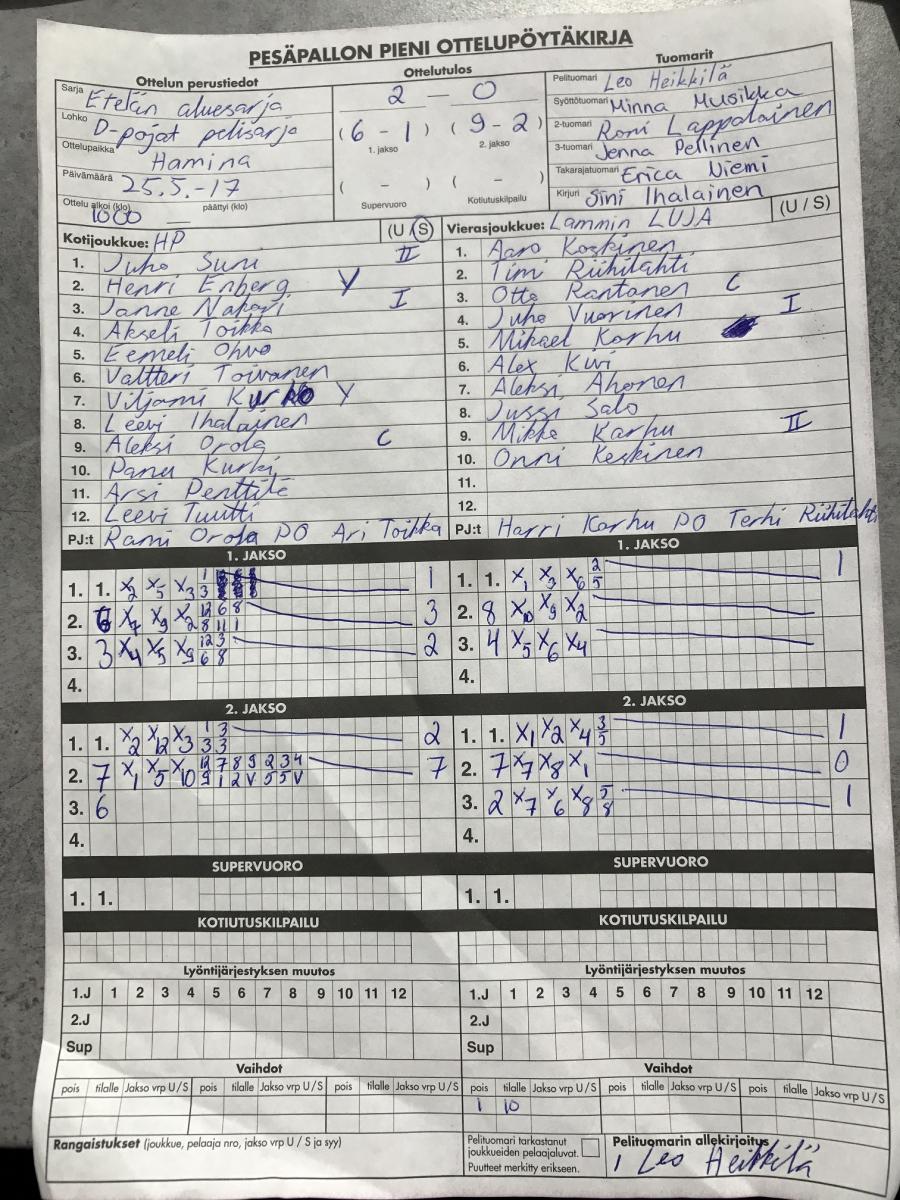 PESÄPALLON PIENI OTTELUPÖYTÄKIRJA
Ottelun perustiedot
Sarja Etelän aluesarja
Lohko D-pojat pelisarja
Ottelupaikka Hamina
Päivämäärä 25.5.-17
Ottelu alkoi (klo) 1000 päättyi (klo)
Ottelutulos
2 — 0
(6 - 1) (9 - 2)
1. jakso 2. jakso
( - ) ( - )
Supervuoro Kotiutuskilpailu
Tuomarit
Pelituomari Leo Heikkilä
Syöttötuomari Minna Musikka
2-tuomari Roni Lappalainen
3-tuomari Jenna Pellinen
Takarajatuomari Erica Niemi
Kirjuri Sini Ihalainen
Kotijoukkue: HP (U / S)
1. Juho Suni II
2. Henri Enberg Y
3. Janne Nakari I
4. Akseli Toikka
5. Eemeli Ohvo
6. Valtteri Toivanen
7. Viljami Y
8. Leevi Ihalainen
9. Aleksi Orola C
10. Panu Kurki
11. Arsi Penttilä
12. Leevi Tuutti
PJ:t Rami Orola PO Ari Toikka
Vierasjoukkue: Lammin LUJA (U / S)
1. Aaro Koskinen
2. Timi Riihilahti
3. Otto Rantanen C
4. Juho Vuorinen I
5. Mikael Karhu
6. Alex Kivi
7. Aleksi Ahonen
8. Jussi Salo
9. Mikko Karhu II
10. Onni Keskinen
11.
12.
PJ:t Harri Karhu PO Terhi Riihilahti
1. JAKSO
1. 1. X2 X5 X3 1 3 1
2. 6 X7 X9 X2 12 8 6 11 8 1 3
3. 3 X4 X5 X9 12 6 3 8 2
4.
1. JAKSO
1. 1. X1 X3 X6 2 5 1
2. 8 X10 X9 X2
3. 4 X5 X6 X4
4.
2. JAKSO
1. 1. X2 X12 X3 1 3 3 3 2
2. 7 X1 X5 X10 12 7 8 9 2 3 4 7
9 1 2 V 5 5 V
3. 6
4.
2. JAKSO
1. 1. X1 X2 X4 3 5 1
2. 7 X7 X8 X1 0
3. 2 X7 X6 X8 5 8 1
4.
SUPERVUORO
1. 1.
SUPERVUORO
1. 1.
KOTIUTUSKILPAILU
KOTIUTUSKILPAILU
Lyöntijärjestyksen muutos
1.J 1 2 3 4 5 6 7 8 9 10 11 12
2.J
Sup
Lyöntijärjestyksen muutos
1.J 1 2 3 4 5 6 7 8 9 10 11 12
2.J
Sup
Vaihdot
pois tilalle Jakso vrp U / S pois tilalle Jakso vrp U / S pois tilalle Jakso vrp U / S
Vaihdot
pois tilalle Jakso vrp U / S pois tilalle Jakso vrp U / S pois tilalle Jakso vrp U / S
1 10
Rangaistukset (joukkue, pelaaja nro, jakso vrp U / S ja syy)
Pelituomari tarkastanut
joukkueiden pelaajaluvat.
Puutteet merkitty erikseen.
Pelituomarin allekirjoitus
Leo Heikkilä